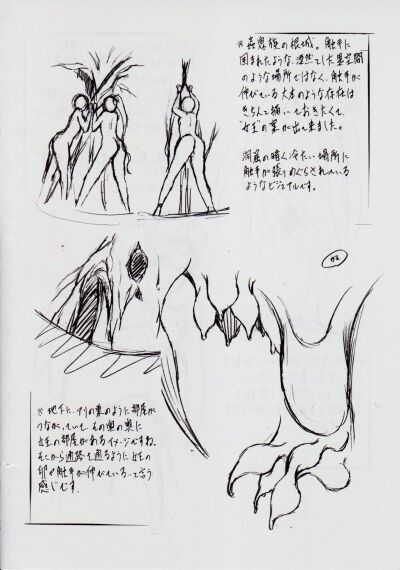 ※蟲惑後の根城。触手に
囲まれたような、漠然とした異空間
のような場所ではなく、触手が
伸びている大本のような存在は
きちんと描いておきたくて
"女王"の案が出て来ました。
洞窟の暗く冷たい場所に
触手が張りめぐらされている
ようなビジュアルです。
02
※地下に、アリの巣のように部屋が
つながっていて、その奥の奥に
女王の部屋があるイメージですね。
そこから通路を通るように女王の
卵や触手が伸びている…って言う
感じです。